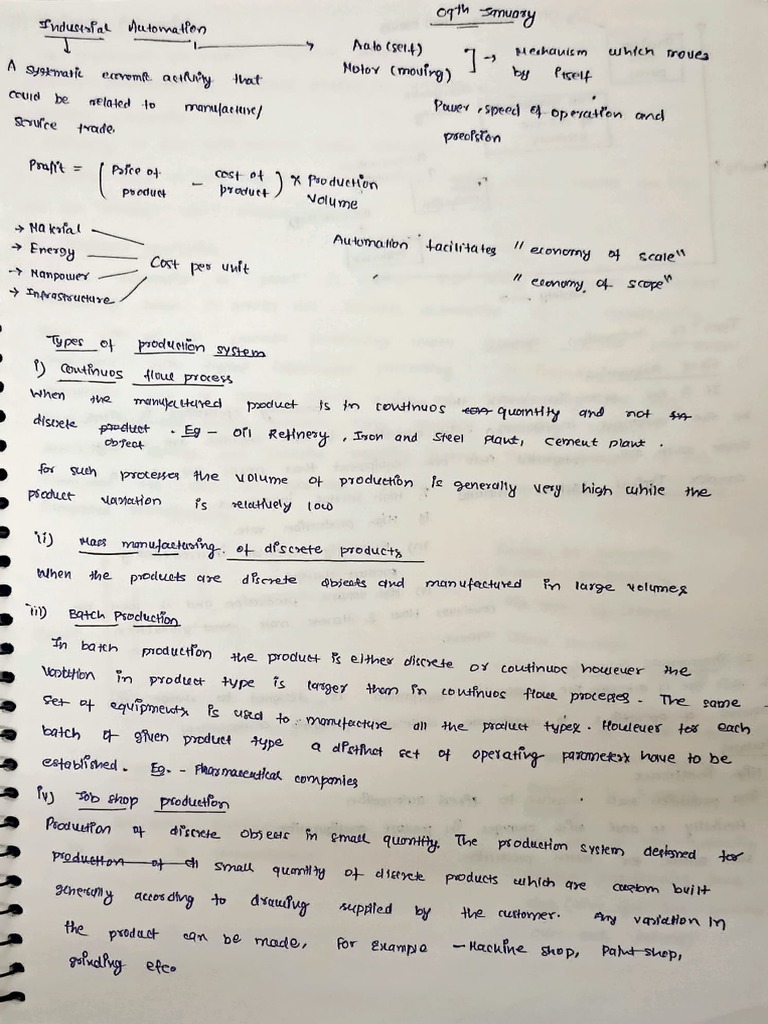 09th Janury
Industrial Automation
Auto (self)
Motor (moving)
Mechanism which moves
by itself
A systematic economic activity that
could be related to manufacture/
Service trade.
Power, speed of operation and
precision
Profit = ( Price of product - cost of product ) x Production Volume
→ Material
→ Energy
→ Manpower
→ Infrastructure
Cost per unit
Automation facilitates "economy of scale"
"economy of scope"
Types of production system
i) Continuos flow process
When the manufactured product is in continuos quantity and not
discrete product. Eg - Oil Refinery, Iron and Steel Plant, cement plant.
object
for such processes the volume of production is generally very high while the
product variation is relatively low
ii) Mass manufacturing of discrete products
When the products are discrete objects and manufactured in large volumes
iii) Batch Production
In batch production the product is either discrete or continuos however the
variation in product type is larger than in continuos flow processes. The same
set of equipments is used to manufacture all the product types. However for each
batch of given product type a distinct set of operating parameters have to be
established. Eg. - Pharmaceutical companies
iv) Job shop production
Production of discrete objects in small quantity. The production system designed for
production of di small quantity of discrete products which are custom built
generally according to drawing supplied by the customer. Any variation in
the product can be made, For Example - Machine shop, Paint shop,
grinding etc.